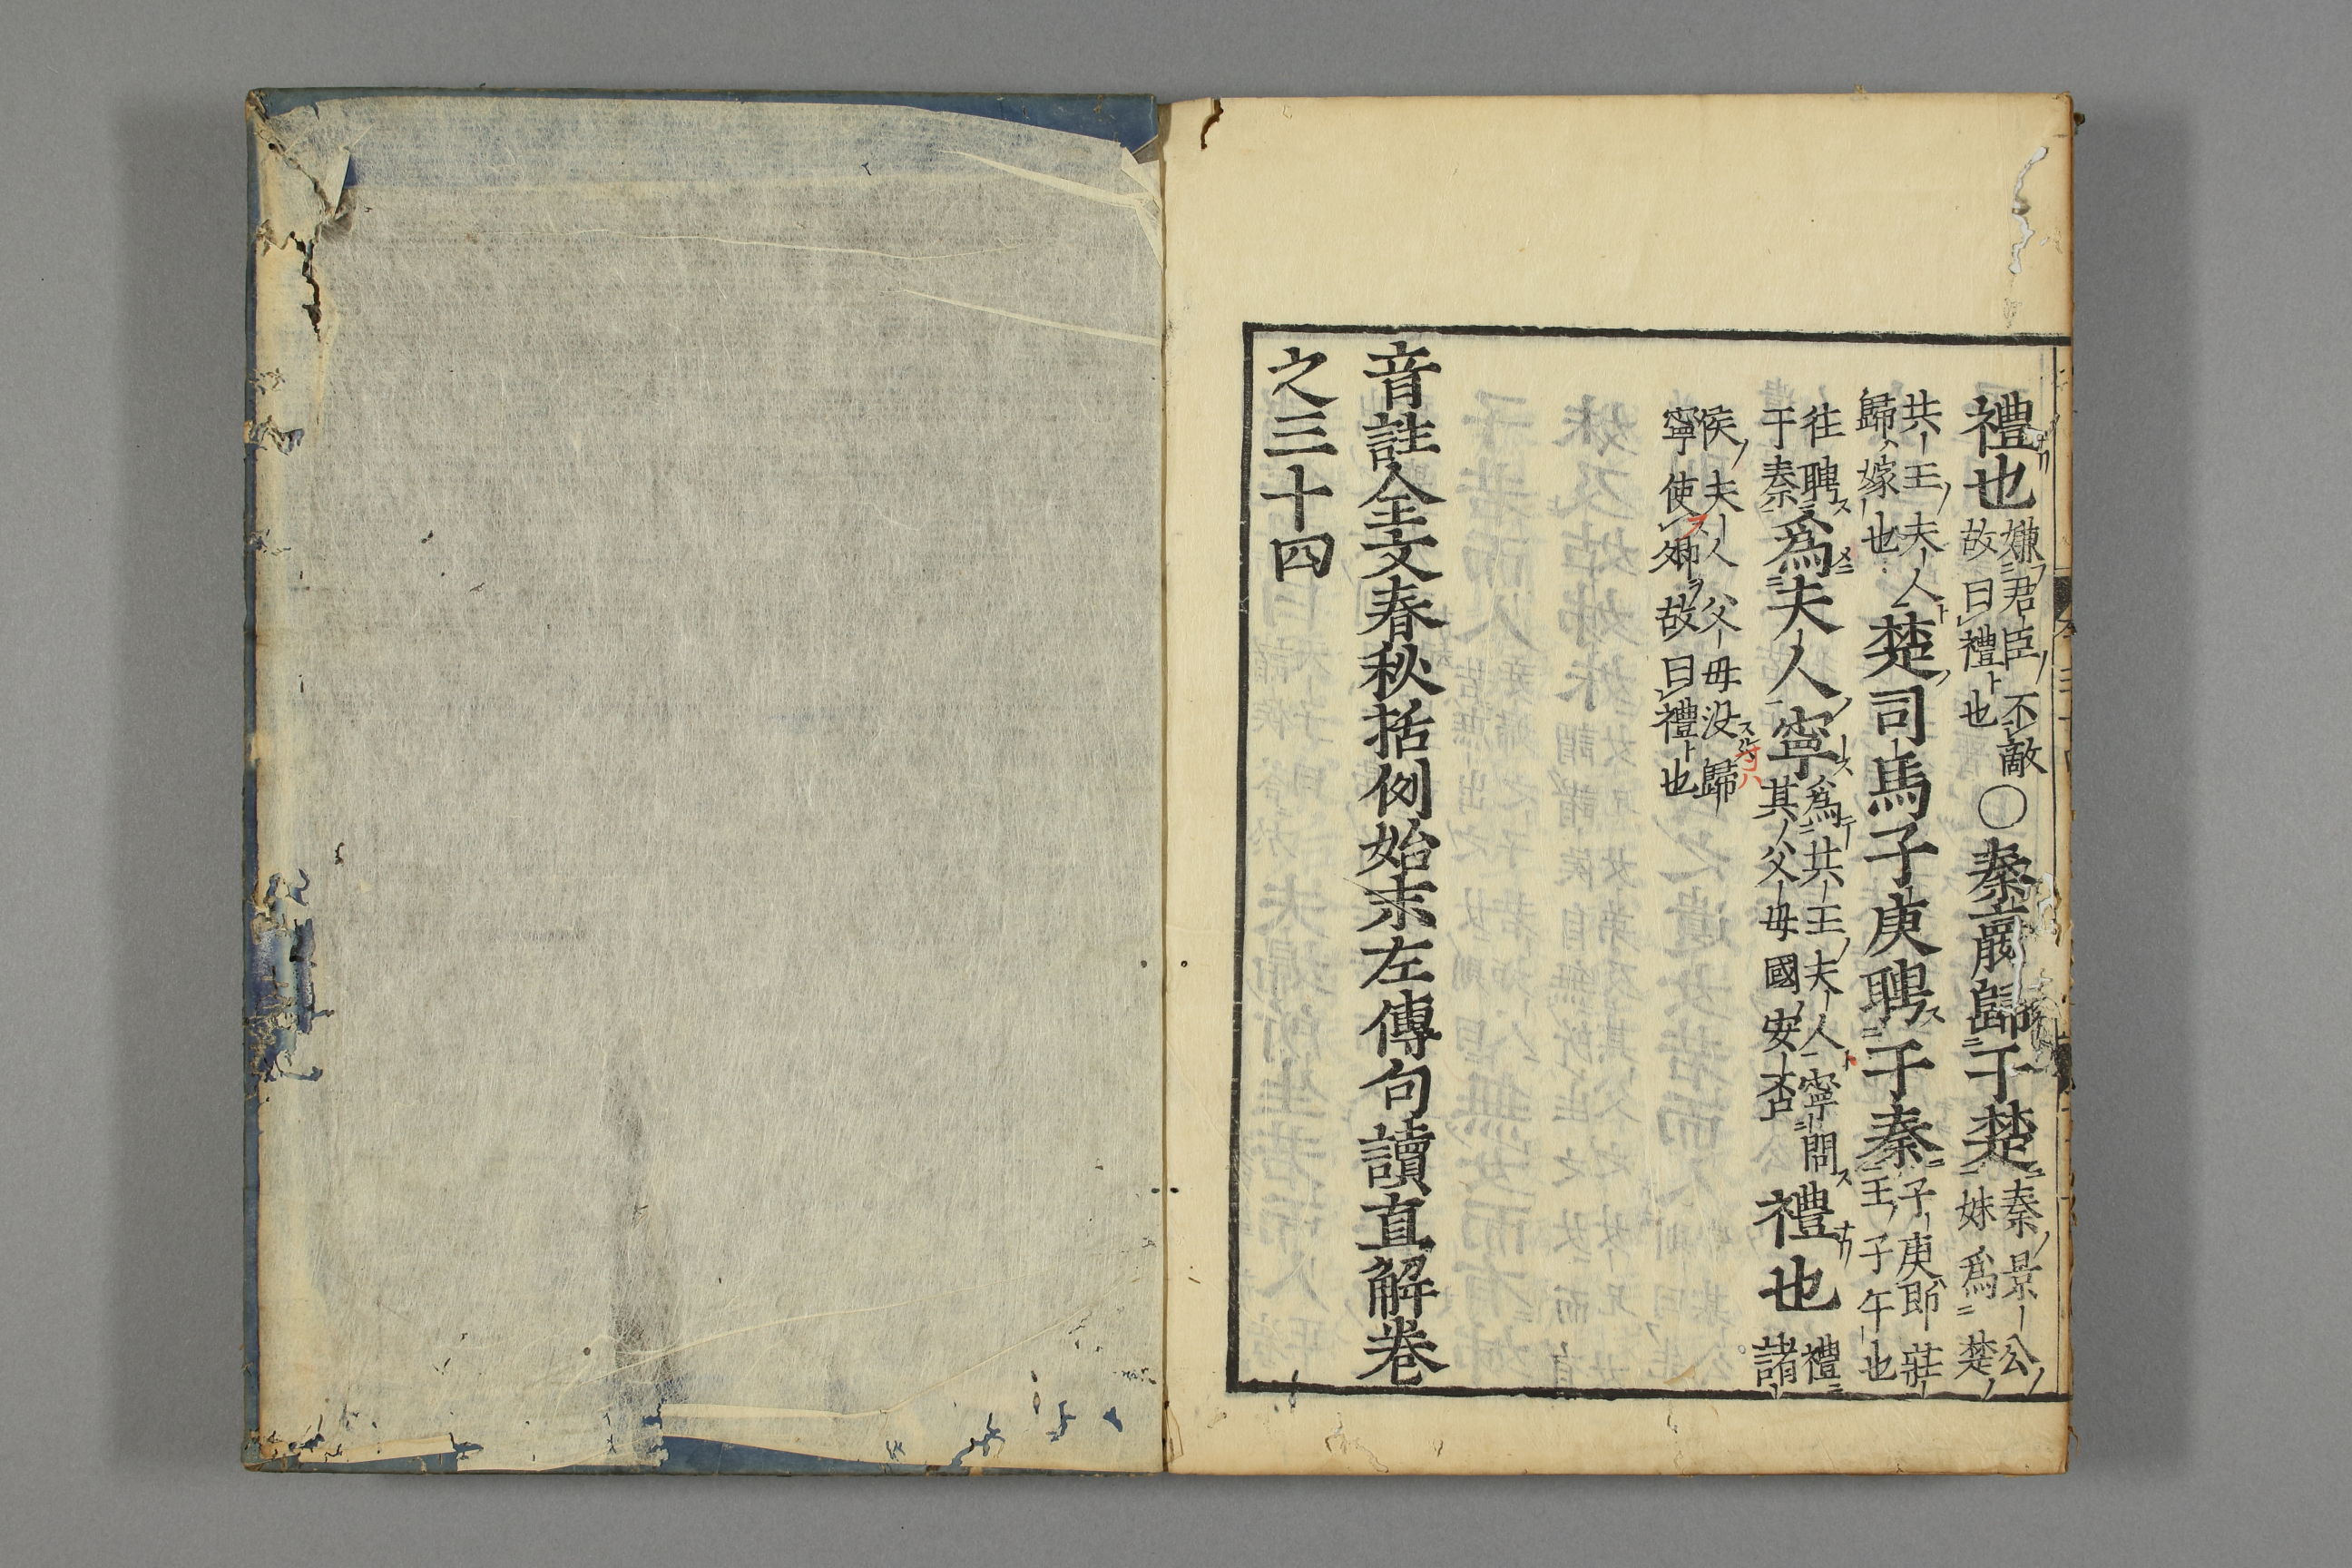 禮也嫌君臣不敵故曰禮也○秦嬴歸于楚秦景公妹爲楚
共王夫人歸嫁也楚司馬子庚聘于秦子庚即莊王子午也
往聘于秦爲夫人寧爲共王夫人寧問其父母國安否禮也禮諸
侯夫人父母没歸寧使卿故曰禮也
音註全文春秋括例始末左傳句讀直解卷
之三十四